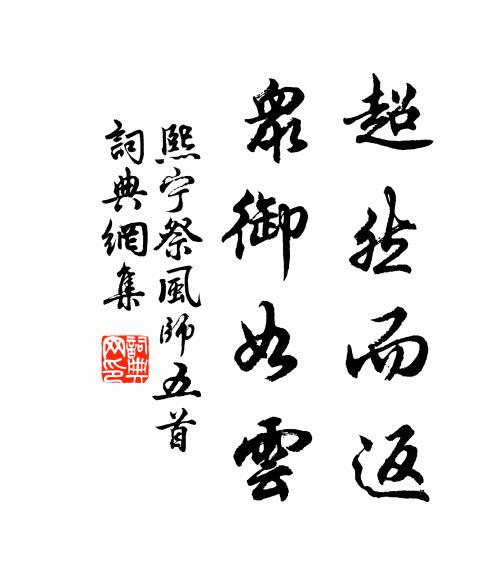 超然而返
眾御如雲
熙宁祭風師五首
詞典網集
詞典网印